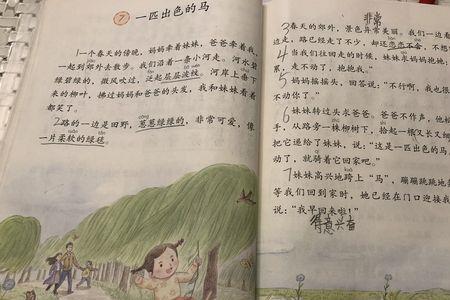 7 一匹出色的马
1一个春天的傍晚，妈妈牵着妹妹，爸爸牵着我，
一起到郊外去散步。我们沿着一条小河走。河水碧
绿碧绿的，微风吹过，泛起层层波纹。河岸上垂下
来的柳叶，拂过妈妈和爸爸的头发，我和妹妹看着
都笑了。
2路的一边是田野，葱葱绿绿的，非常可爱，像
一片柔软的绿毯。
非常
3春天的郊外，景色异常美丽。我们一边看
边走，路已经走了不少，却还恋恋不舍，不想
4当我们往回走的时候，妹妹求妈妈抱她
累，走不动了，抱抱我。”
5妈妈摇摇头，回答说：“不行啊，我也很
不动你了。”
6妹妹转过头求爸爸。爸爸不作声，他松
手，从路旁一株柳树下，拾起一根又长又细
把它递给了妹妹，说：“这是一匹出色的马
动了，就骑着它回家吧。”
7妹妹高兴地跨上“马”，蹦蹦跳跳地
等我们回到家时，她已经在门口迎接我
说：“我早回来啦！”
得意兴奋